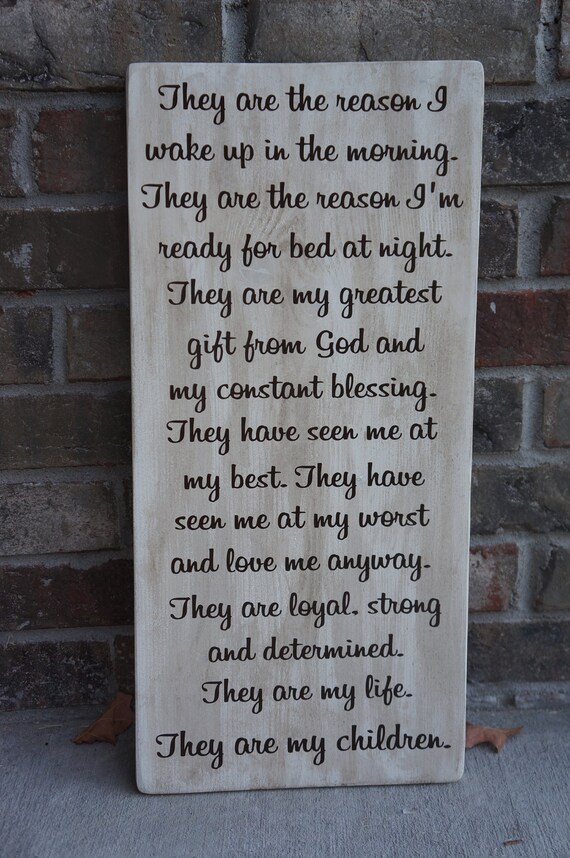 They are the reason I
wake up in the morning.
They are the reason I'm
ready for bed at night.
They are my greatest
gift from God and
my constant blessing.
They have seen me at
my best. They have
seen me at my worst
and love me anyway.
They are loyal, strong
and determined.
They are my life.
They are my children.